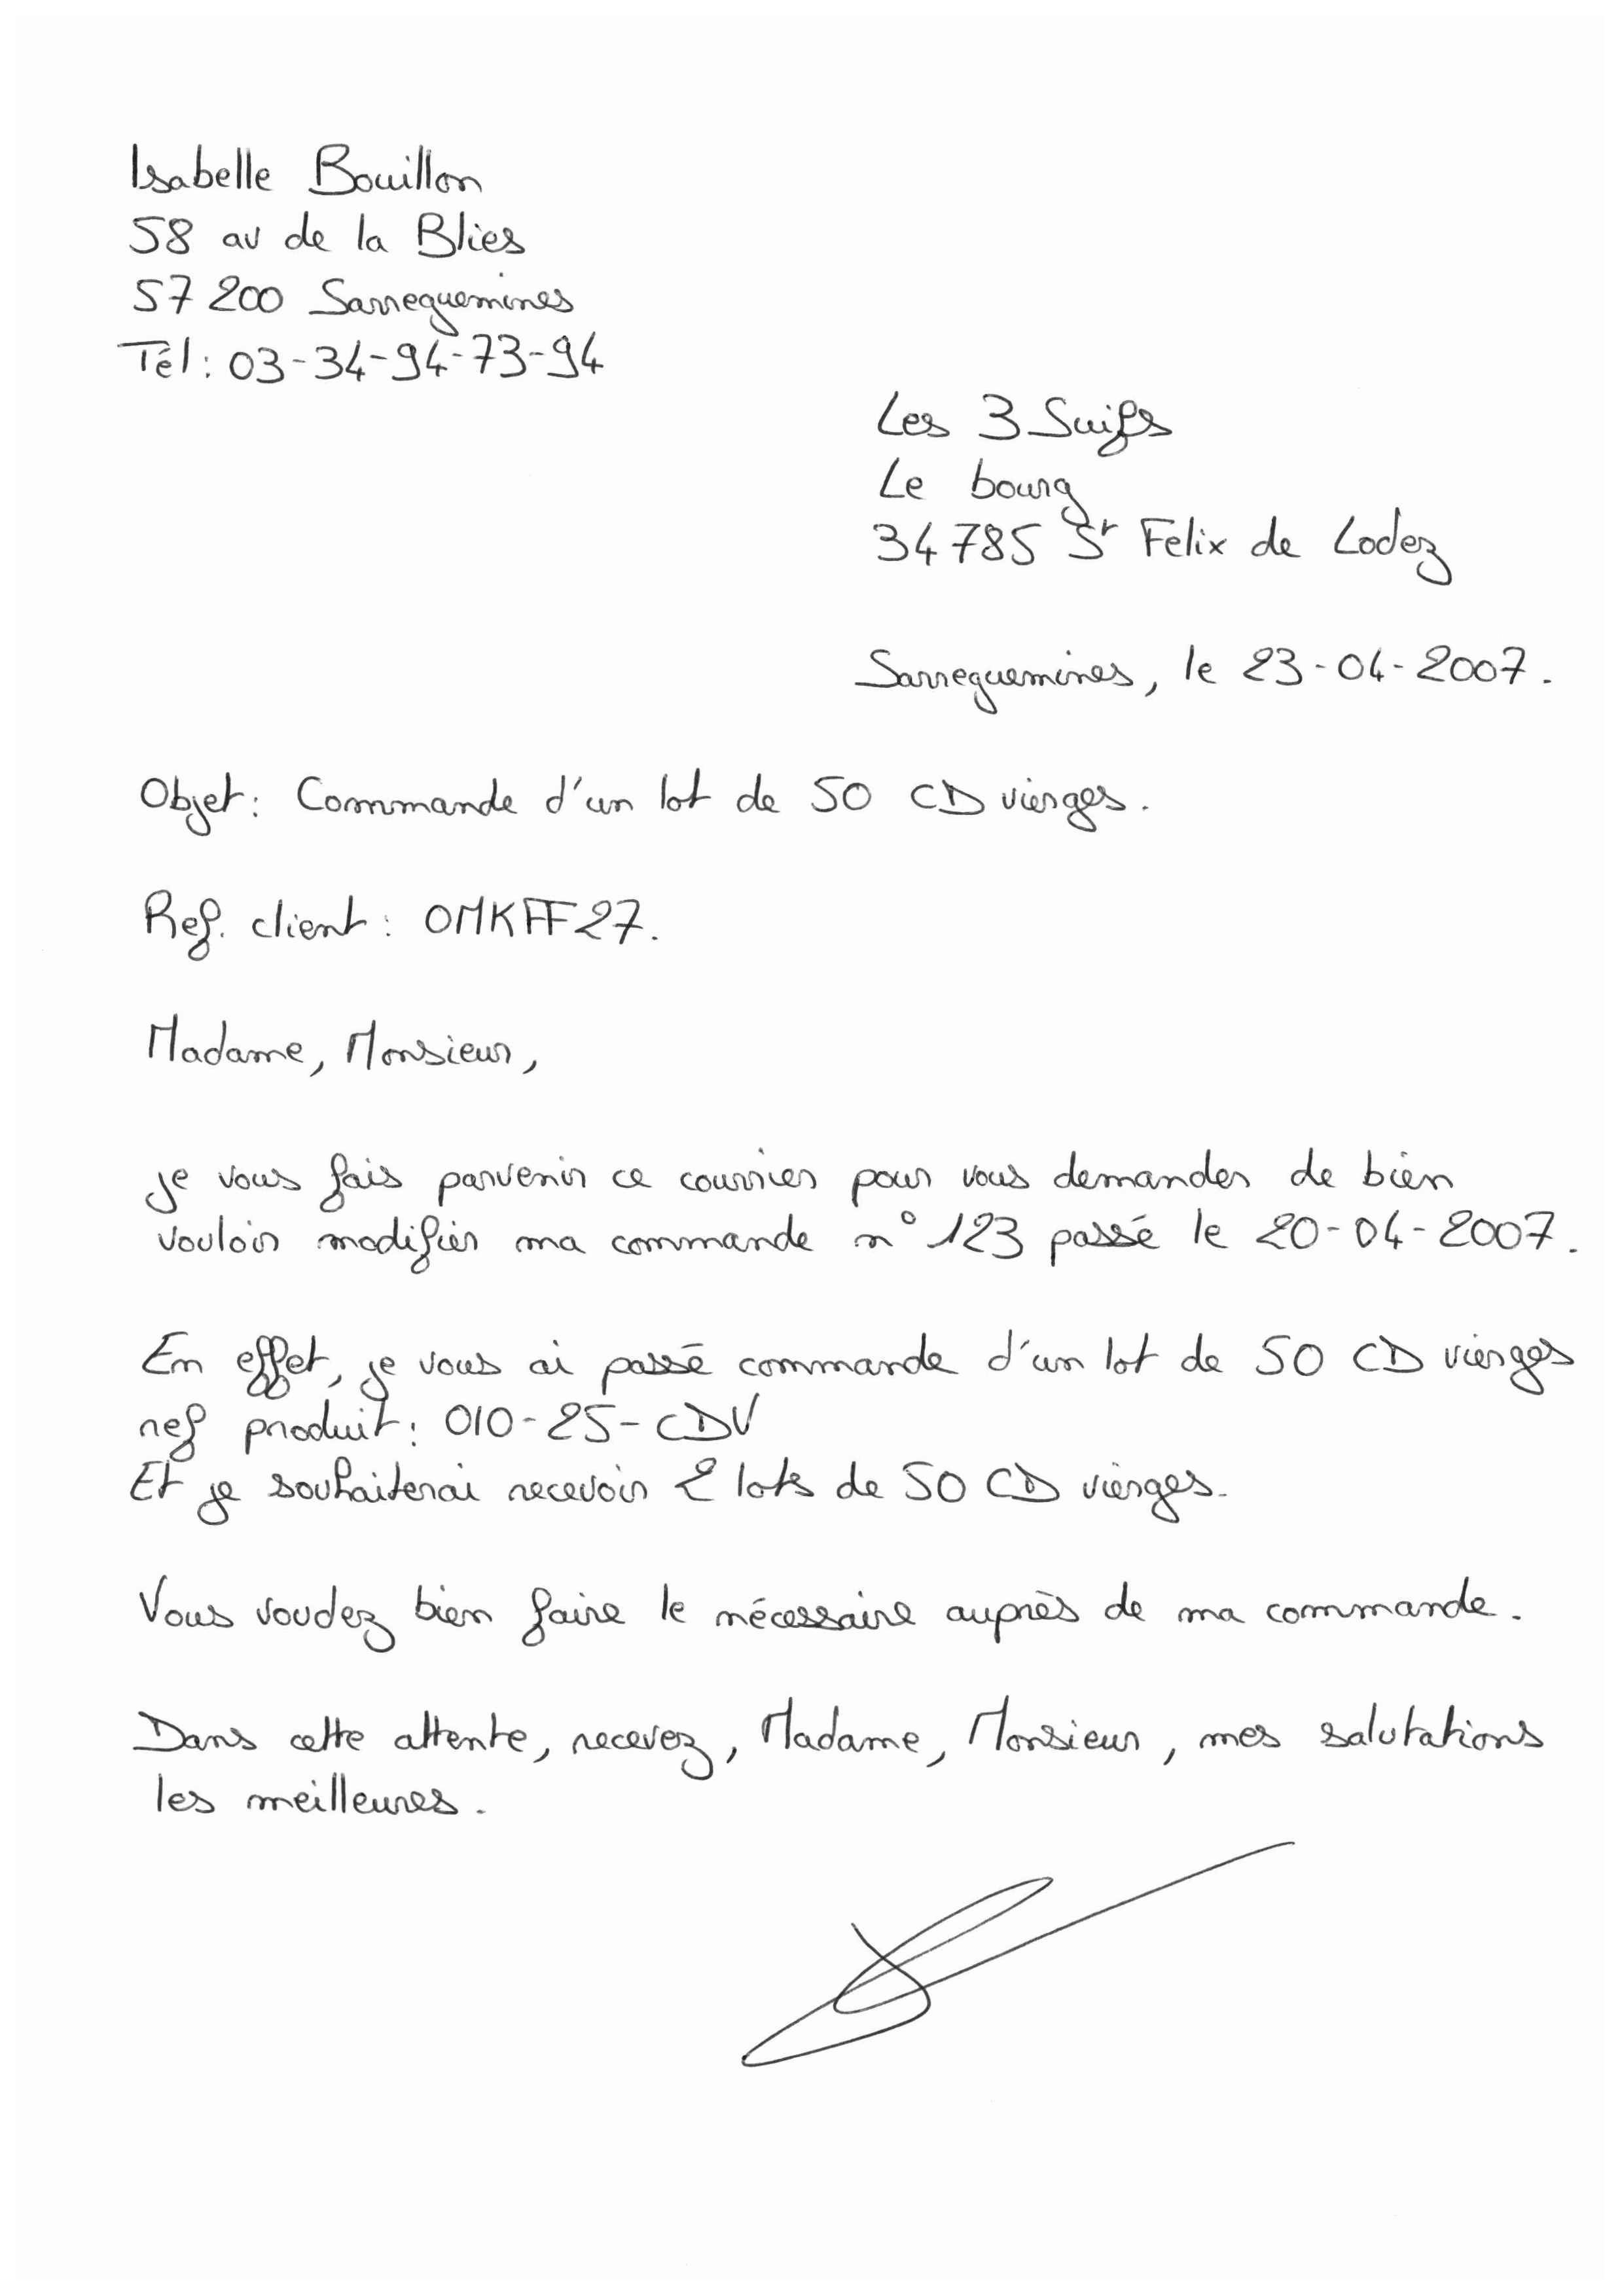 Isabelle Bouillon
58 av de la Blies
57200 Sarreguemines
Tél : 03-34-94-73-94
Les 3 Suifs
Le bourg
34785 St Felix de Lodez
Sarreguemines, le 23-04-2007.
Objet : Commande d'un lot de 50 CD vierges.
Ref. client : OMKFF27.
Madame, Monsieur,
je vous fais parvenir ce courrier pour vous demander de bien
vouloir modifier ma commande n° 123 passé le 20-04-2007.
En effet, je vous ai passé commande d'un lot de 50 CD vierges
ref produit : 010-25-CDV
Et je souhaiterai recevoir 2 lots de 50 CD vierges.
Vous voudez bien faire le nécessaire auprès de ma commande.
Dans cette attente, recevez, Madame, Monsieur, mes salutations
les meilleures.